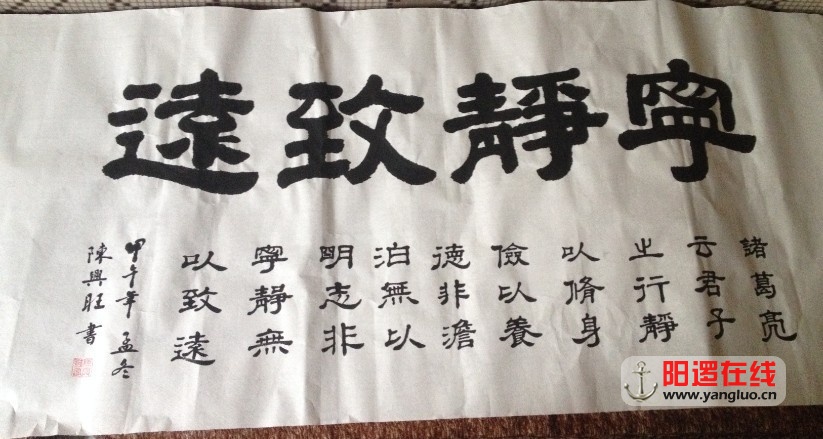 寧靜致遠
諸葛亮
云君子
之行靜
以脩身
儉以養
德非澹
泊無以
明志非
寧靜無
以致遠
甲午年孟冬
陳興旺書
阳逻在线
www.yangluo.cn